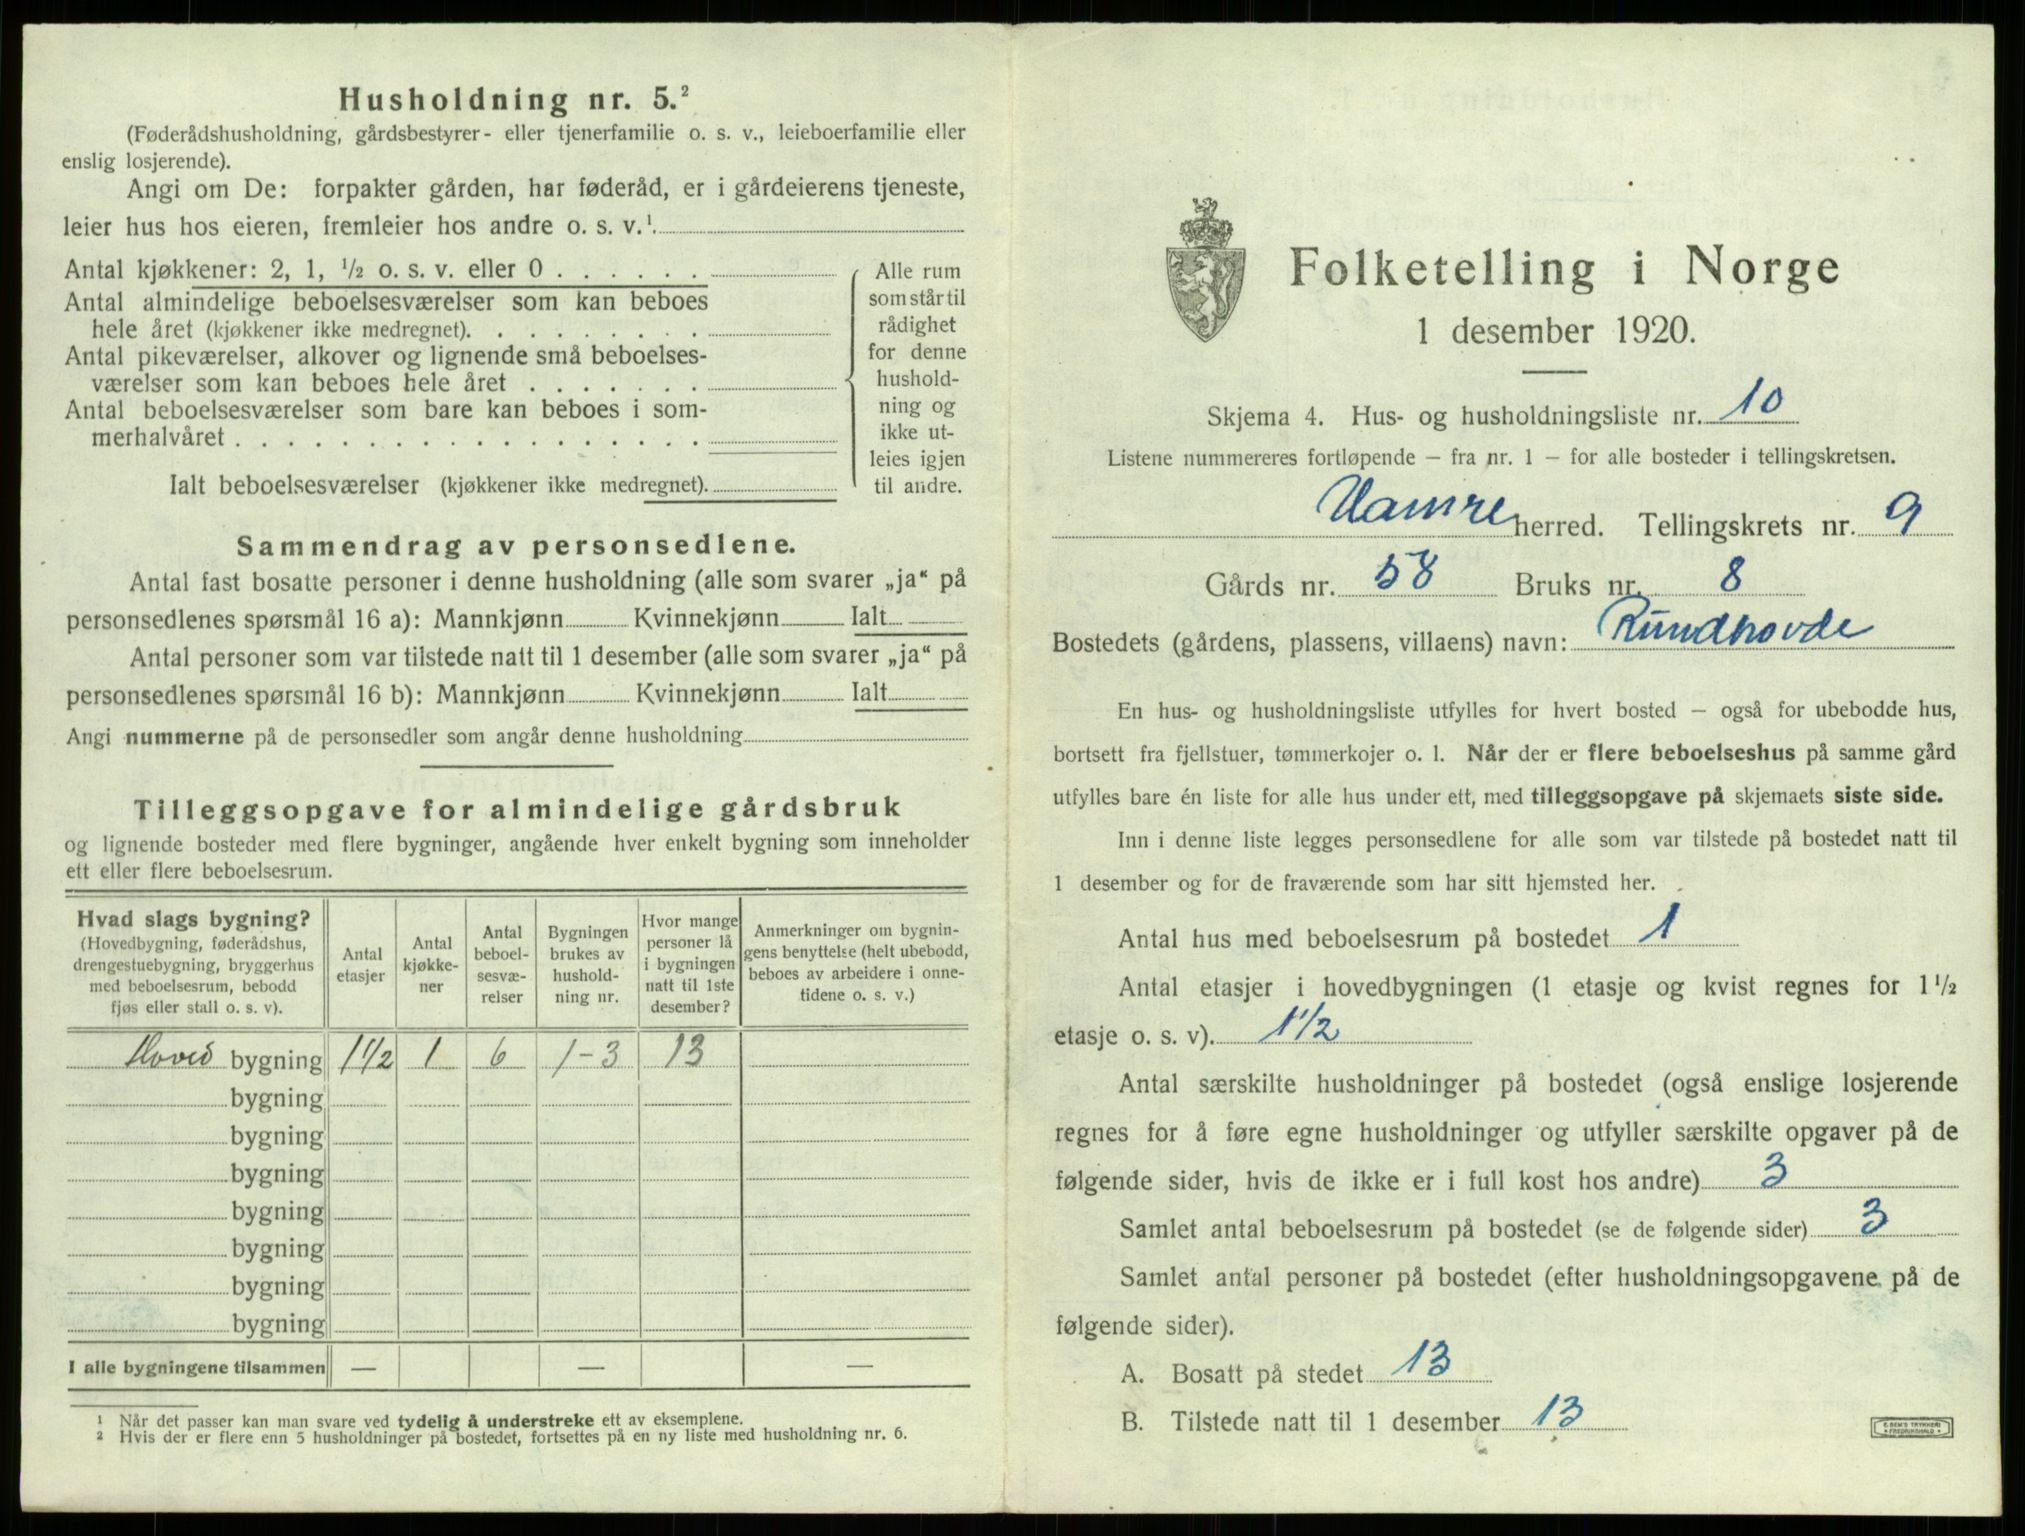 Husholdning nr. 5.²
(Føderådshusholdning, gårdsbestyrer- eller tjenerfamilie o. s. v., leieboerfamilie eller
enslig losjerende).
Angi om De: forpakter gården, har føderåd, er i gårdeierens tjeneste,
leier hus hos eieren, fremleier hos andre o. s. v.¹
Antal kjøkkener: 2, 1, ½ o. s. v. eller 0 . . . . . .
Antal almindelige beboelsesværelser som kan beboes
hele året (kjøkkener ikke medregnet). . . . . . . . .
Antal pikeværelser, alkover og lignende små beboelses-
værelser som kan beboes hele året . . . . . . .
Antal beboelsesværelser som bare kan beboes i som-
merhalvåret . . . . . . . . . . . . . . . . . .
Ialt beboelsesværelser (kjøkkener ikke medregnet).
Alle rum
som står til
rådighet
for denne
hushold-
ning og
ikke ut-
leies igjen
til andre.
Sammendrag av personsedlene.
Antal fast bosatte personer i denne husholdning (alle som svarer „ja“ på
personsedlenes spørsmål 16 a): Mannkjønn Kvinnekjønn Ialt
Antal personer som var tilstede natt til 1 desember (alle som svarer „ja“ på
personsedlenes spørsmål 16 b): Mannkjønn Kvinnekjønn Ialt
Angi nummerne på de personsedler som angår denne husholdning
Tilleggsopgave for almindelige gårdsbruk
og lignende bosteder med flere bygninger, angående hver enkelt bygning som inneholder
ett eller flere beboelsesrum.
Hvad slags bygning?
(Hovedbygning, føderådshus,
drengestuebygning, bryggerhus
med beboelsesrum, bebodd
fjøs eller stall o. s. v).
Antal
etasjer
Antal
kjøkke-
ner
Antal
beboel-
sesvæ-
relser
Bygningen
brukes av
hushold-
ning nr.
Hvor mange
personer lå
i bygningen
natt til 1ste
desember?
Anmerkninger om bygnin-
gens benyttelse (helt ubebodd,
beboes av arbeidere i onne-
tidene o. s. v.)
Hoved bygning 1 1/2 1 6 1-3 13
bygning
bygning
bygning
bygning
bygning
bygning
bygning
I alle bygningene tilsammen — — —
¹ Når det passer kan man svare ved tydelig å understreke ett av eksemplene.
² Hvis der er flere enn 5 husholdninger på bostedet, fortsettes på en ny liste med husholdning nr. 6.
Folketelling i Norge
1 desember 1920.
Skjema 4. Hus- og husholdningsliste nr. 10
Listene nummereres fortløpende — fra nr. 1 — for alle bosteder i tellingskretsen.
Hamre herred. Tellingskrets nr. 9
Gårds nr. 58 Bruks nr. 8
Bostedets (gårdens, plassens, villaens) navn: Rundhovde
En hus- og husholdningsliste utfylles for hvert bosted — også for ubebodde hus,
bortsett fra fjellstuer, tømmerkojer o. l. Når der er flere beboelseshus på samme gård
utfylles bare én liste for alle hus under ett, med tilleggsopgave på skjemaets siste side.
Inn i denne liste legges personsedlene for alle som var tilstede på bostedet natt til
1 desember og for de fraværende som har sitt hjemsted her.
Antal hus med beboelsesrum på bostedet 1
Antal etasjer i hovedbygningen (1 etasje og kvist regnes for 1½
etasje o. s. v). 1 1/2
Antal særskilte husholdninger på bostedet (også enslige losjerende
regnes for å føre egne husholdninger og utfyller særskilte opgaver på de
følgende sider, hvis de ikke er i full kost hos andre) 3
Samlet antal beboelsesrum på bostedet (se de følgende sider) 3
Samlet antal personer på bostedet (efter husholdningsopgavene på de
følgende sider).
A. Bosatt på stedet 13
B. Tilstede natt til 1 desember 13
E. SEM'S TRYKKERI
FREDRIKSHALD